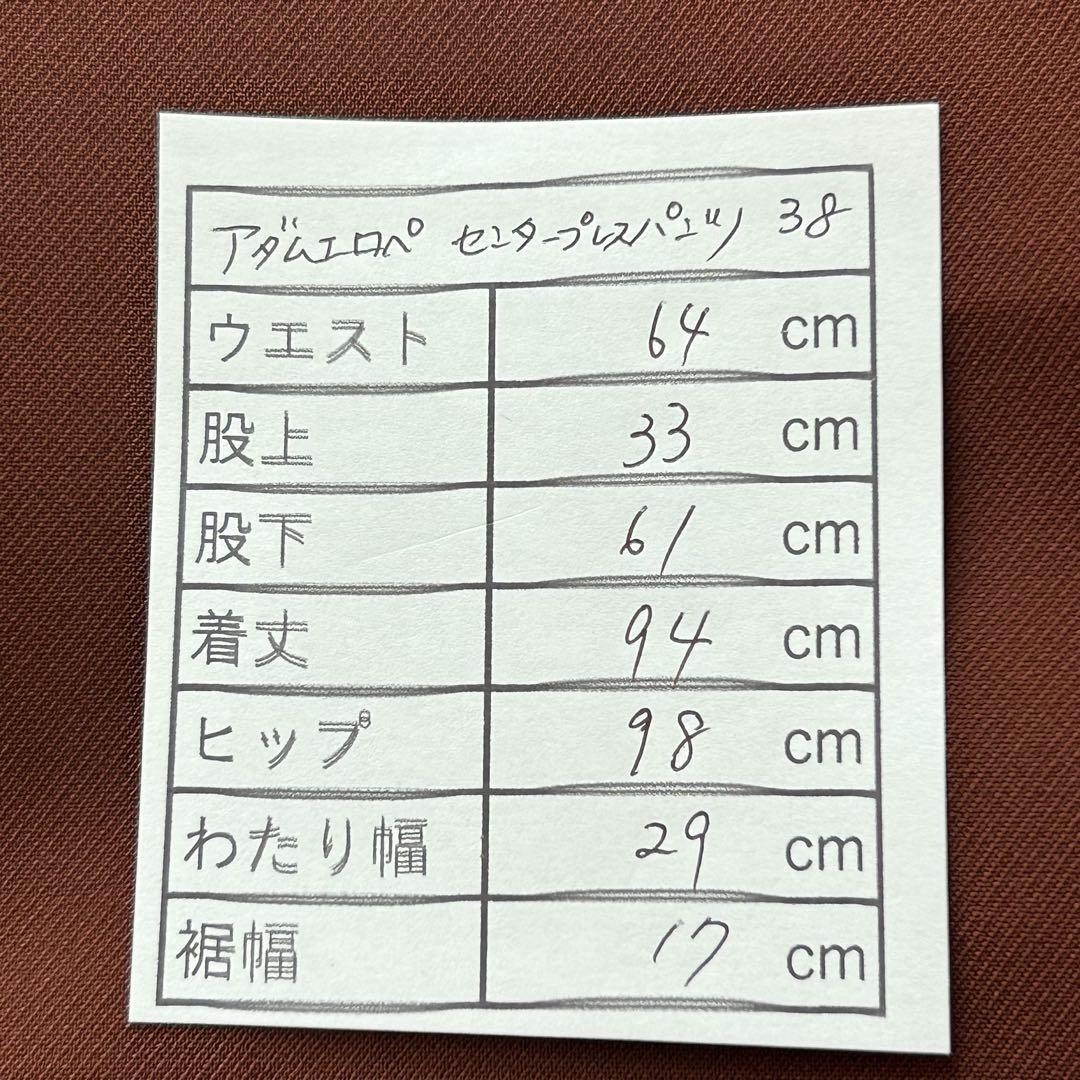 アダムエロペ センタープレスパンツ 38
ウエスト 64 cm
股上 33 cm
股下 61 cm
着丈 94 cm
ヒップ 98 cm
わたり幅 29 cm
裾幅 17 cm